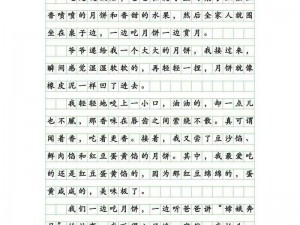 香喷喷的月饼和香甜的水果，然后全家人就围
坐在桌子边，一边吃月饼一边赏月。
爷爷递给我一个大大的月饼，我接过来，
瞬间感觉湿湿软软的，再轻轻一捏，月饼就像
橡皮泥一样凹了进去。
我轻轻地咬上一小口，油油的，却一点儿
也不腻，那香味在唇齿之间萦绕不散。真可谓
闻着香，吃着更香。接着，我又尝了豆沙馅、
鲜肉馅和红豆蛋黄馅的月饼。其中，我最爱吃
的还是红豆蛋黄馅的，因为那红豆绵绵的，蛋
黄咸咸的，美味极了。
我们一边吃月饼，一边听爸爸讲“嫦娥奔